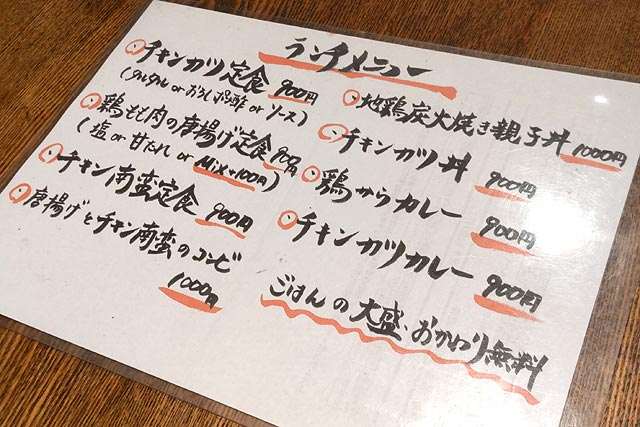 ランチメニュー
チキンカツ定食 900円
(タルタル or おろしポン酢 or ソース)
鶏もも肉の唐揚げ定食 900円
(塩 or 甘だれ or Mix+100円)
チキン南蛮定食 900円
唐揚げとチキン南蛮のコンビ
1000円
地鶏炭火焼き親子丼 1000円
チキンカツ丼 900円
鶏からカレー 900円
チキンカツカレー 900円
ごはんの大盛、おかわり無料